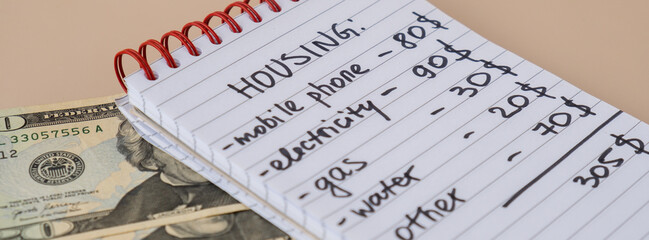 HOUSING:
- mobile phone - 80$
- electricity - 90$
- gas - 30$
- water - 20$
other - 70$
305$
FEDERAL
33057556 A
12